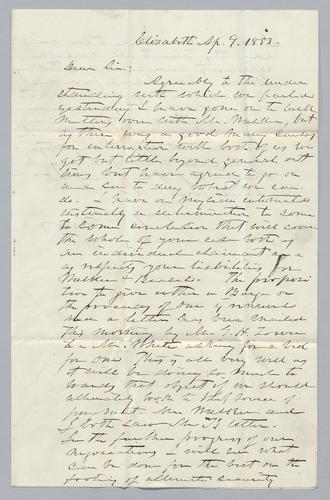 Elizabeth Ap. 9. 1853.
Dear Sir:
Agreeably to the under
standing with which we parted
yesterday I have gone on to talk
matters over with Mr. Walker, but
as there was a good many
for interruption with both of us we
got but little beyond general out
lines but have agreed to go on
and see to day what we can
do. I have on my side intimated
distinctly a determination to come
to some conclusion that will cover
the whole of your case both as
an individual claimant and
as respects your liabilities for
Walker &amp; The proposi
tion to give
the proceeds of our
and a letter has been mailed
this morning by Mr. G. H.
to Mr. White asking for a bid
for one. This is all very well as
it will be doing so much to
wards that object if we should
ultimately look to that source of
payment. Mr. Walker and
I both saw Mr. letter.
In the further progress of our
negociations I will see what
can be done for the best on the
footing of ultimate security